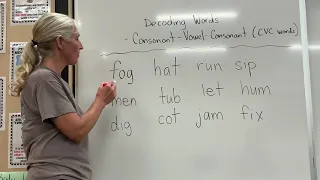 Decoding Words
- Consonant-Vowel-Consonant (CVC words)
fog hat run sip
men tub let hum
dig cot jam fix